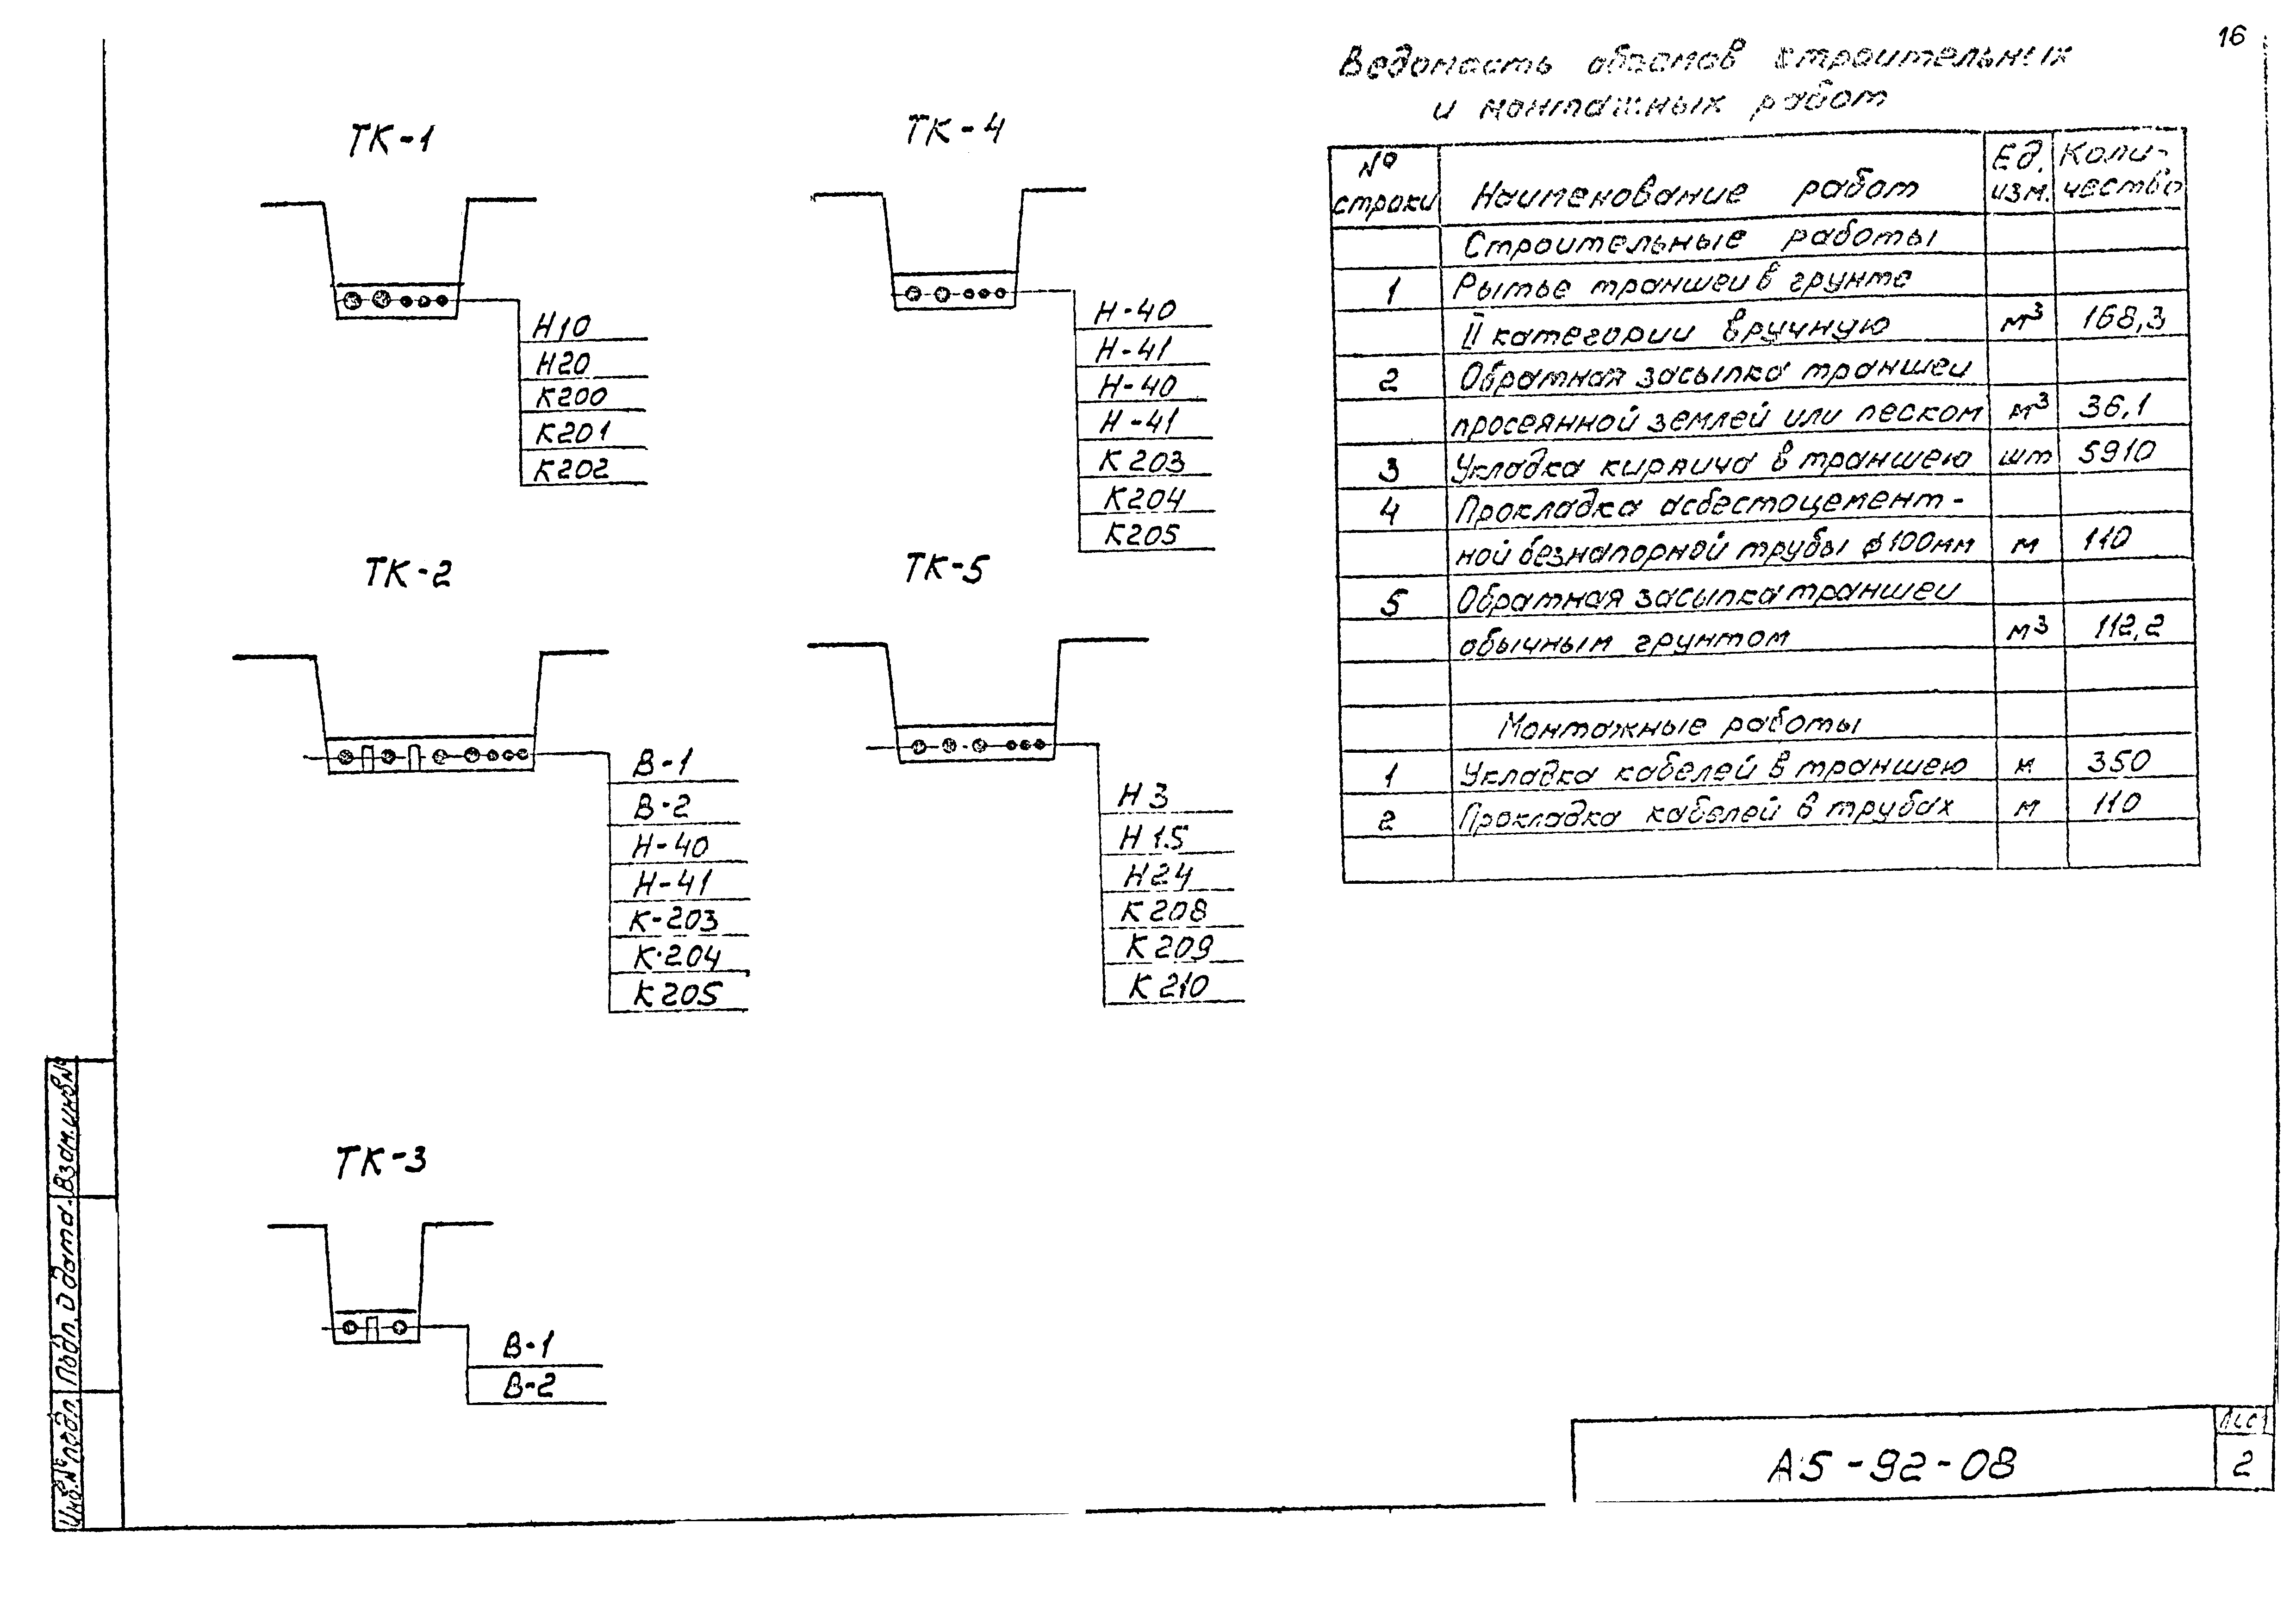 16
Ведомость объемов строительных
и монтажных работ
ТК-1
Н10
Н20
К200
К201
К202
ТК-4
Н-40
Н-41
Н-40
Н-41
К203
К204
К205
ТК-2
В-1
В-2
Н-40
Н-41
К-203
К-204
К205
ТК-5
Н3
Н15
Н24
К208
К209
К210
ТК-3
В-1
В-2
№ строки Наименование работ Ед. изм. Коли-чество
Строительные работы
1 Рытье траншеи в грунте
II категории вручную м³ 168,3
2 Обратная засыпка траншеи
просеянной землей или песком м³ 36,1
3 Укладка кирпича в траншею шт 5910
4 Прокладка асбестоцемент-
ной безнапорной трубы ф100мм м 110
5 Обратная засыпка траншеи
обычным грунтом м³ 112,2
Монтажные работы
1 Укладка кабелей в траншею м 350
2 Прокладка кабелей в трубах м 110
Взам. инв.№
Подп. и дата
Инв.№ подл.
А5-92-08
Лис
2